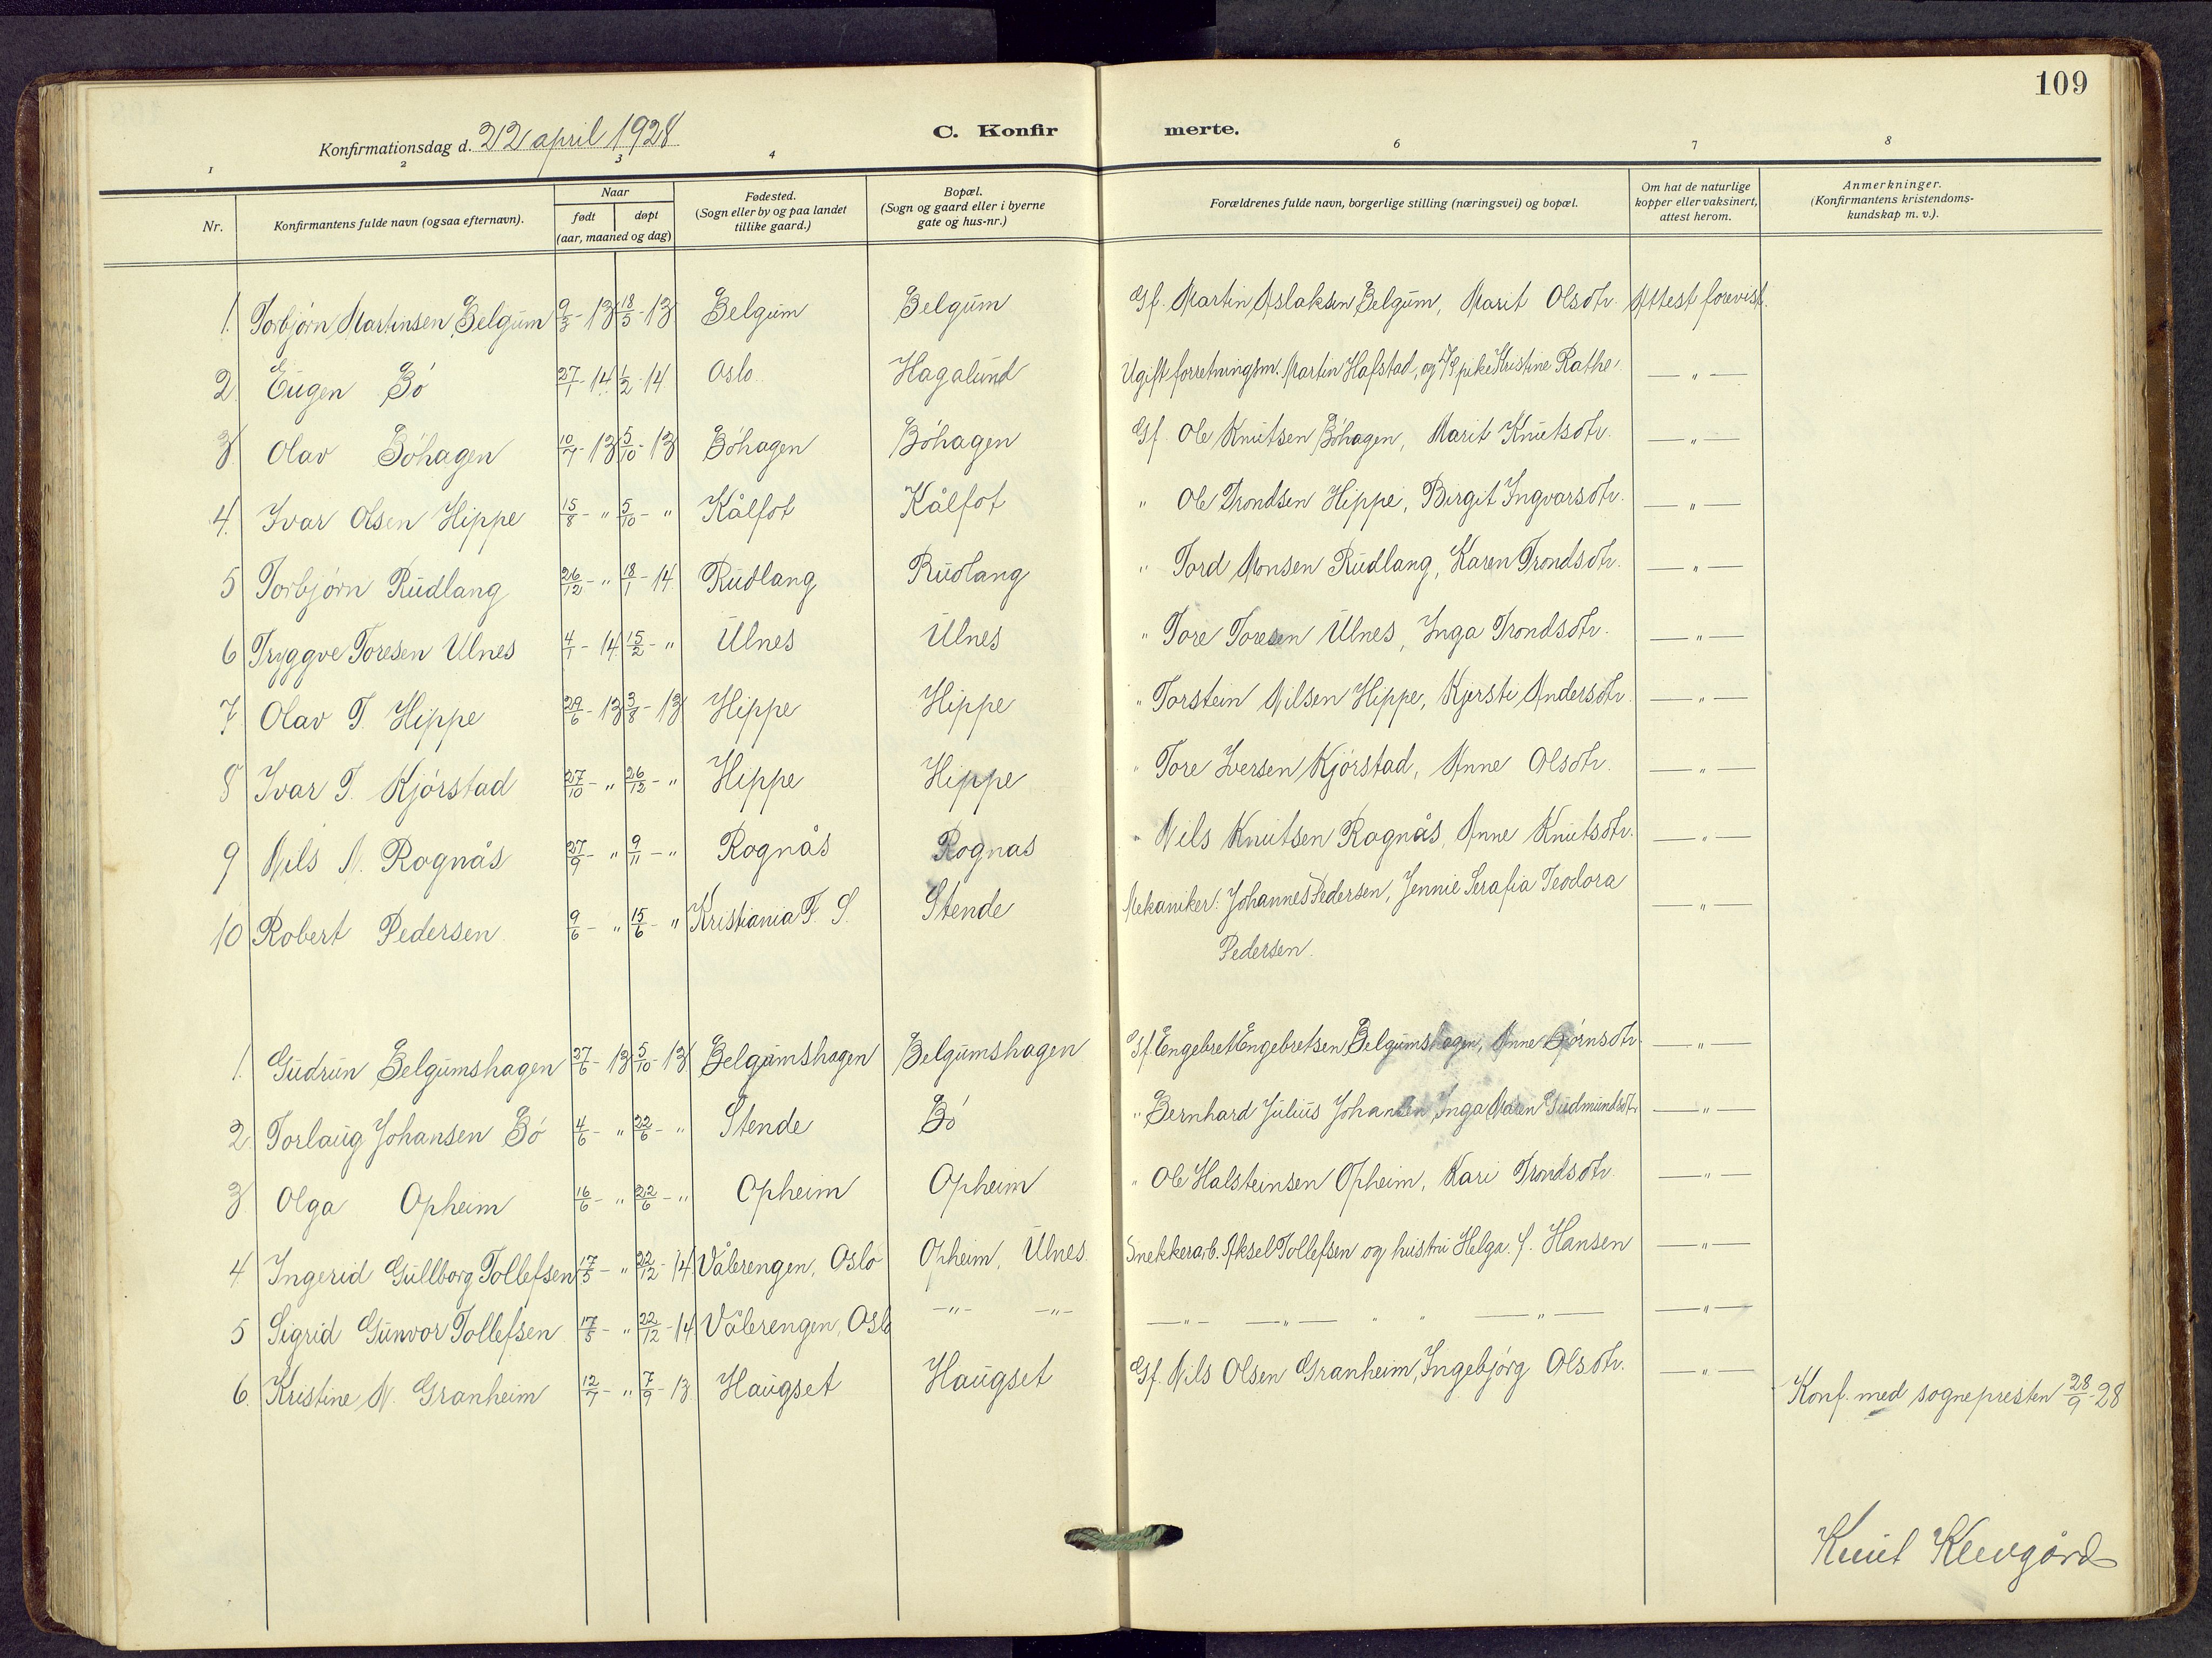 109
Konfirmationsdag d. 22 april 1928
C. Konfirmerte.
1 2 3 4 6 7 8
Nr. Konfirmantens fulde navn (ogsaa efternavn). Naar født døpt (aar, maaned og dag) Fødested. (Sogn eller by og paa landet tillike gaard.) Bopæl. (Sogn og gaard eller i byerne gate og hus-nr.) Forældrenes fulde navn, borgerlige stilling (næringsvei) og bopæl. Om hat de naturlige kopper eller vaksinert, attest herom. Anmerkninger. (Konfirmantens kristendoms-kundskap m. v.).
1. Torbjørn Martinsen Belgum 9/3-13 18/5-13 Belgum Belgum Gf. Martin Aslaksen Belgum, Marit Olsdtr. Attest forevist.
2. Eugen Bö 27/7-14 1/2-14 Oslo Hagalund Ugift forretningsm. Martin Hafstad, og pike Kristine Rathe. —"—
3. Olav Böhagen 10/7-13 5/10-13 Böhagen Böhagen Gf. Ole Knutsen Böhagen, Marit Knutsdtr. —"—
4. Ivar Olsen Hippe 15/8-" 5/10-" Kålfot Kålfot " Ole Trondsen Hippe, Birgit Ingvarsdtr. —"—
5 Torbjørn Rudlang 26/12-" 18/1-14 Rudlang Rudlang " Tord Monsen Rudlang, Karen Trondsdtr. —"—
6 Tryggve Toresen Ulnes 4/1-14 15/2-" Ulnes Ulnes " Tore Toresen Ulnes, Inga Trondsdtr. —"—
7 Olav T. Hippe 29/6-13 3/8-13 Hippe Hippe " Torstein Nilsen Hippe, Kjersti Andersdtr. —"—
8 Ivar T. Kjörstad 27/10-" 26/12-" Hippe Hippe " Tore Iversen Kjörstad, Anne Olsdtr. —"—
9 Nils N. Rognås 27/9-" 9/11-" Rognås Rognas " Nils Knutsen Rognås, Anne Knutsdtr. —"—
10 Robert Pedersen 9/6-" 15/6-" Kristiania F. S. Stende Mekaniker: Johannes Pedersen, Jennie Serafia Teodora —"—
Pedersen.
1. Gudrun Belgumshagen 27/6-13 5/10-13 Belgumshagen Belgumshagen Gf. Engebret Engebretsen Belgumshagen, Anne Bjørnsdtr. —"—
2. Torlaug Johansen Bö 4/6-" 22/6-" Stende Bö " Bernhard Julius Johansen, Inga Maren Gudmundsdtr. —"—
3. Olga Opheim 16/6-" 22/6-" Opheim Opheim " Ole Halsteinsen Opheim, Kari Trondsdtr. —"—
4 Ingerid Gullborg Tollefsen 17/5-" 22/12-14 Vålerengen, Oslo Opheim, Ulnes. Snekkerarb. Aksel Tollefsen og hustru Helga. f. Hansen —"—
5 Sigrid Gunvor Tollefsen 17/5-" 22/12-14 Vålerengen, Oslo —"— —"— —"— —"— " " —"— —"—
6. Kristine N. Granheim 12/7-" 7/9-13. Haugset Haugset Gf. Nils Olsen Granheim, Ingebjörg Olsdtr. —"— Konf. med sognepresten 28/9-28
Knut Kleivgård